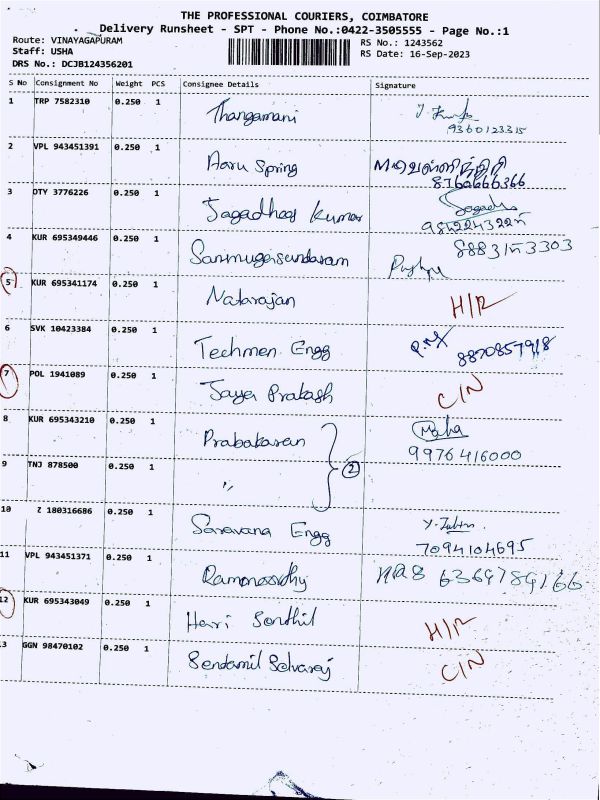 THE PROFESSIONAL COURIERS, COIMBATORE
Delivery Runsheet - SPT - Phone No.:0422-3505555 - Page No.:1
Route: VINAYAGAPURAM
Staff: USHA
DRS No.: DCJB124356201
RS No.: 1243562
RS Date: 16-Sep-2023
S No Consignment No Weight PCS Consignee Details Signature
1 TRP 7582310 0.250 1 Thangamani
9360123315
2 VPL 943451391 0.250 1 Aaru Spring
8760666366
3 DTY 3776226 0.250 1 Jagadhees Kumar
9842243225
4 KUR 695349446 0.250 1 Sanmugasundaram 8883153303
5 KUR 695341174 0.250 1 Natarajan H/R
6 SVK 10423384 0.250 1 Techmen Engg 8870857918
7 POL 1941089 0.250 1 Jaya Prakash C/N
8 KUR 695343210 0.250 1 Prabakaran Maha
9976416000
9 TNJ 878500 0.250 1 " 2
10 Z 180316686 0.250 1 Saravana Engg
7094104695
11 VPL 943451371 0.250 1 Ramamoorthy 6369789166
12 KUR 695343049 0.250 1 Hari Senthil H/R
3 GGN 98470102 0.250 1 Sendamil Selvaraj C/N